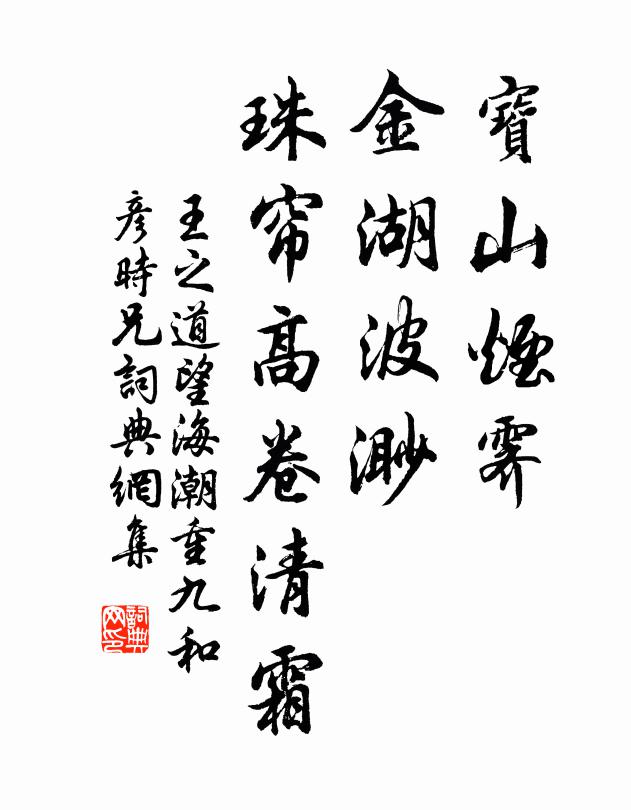 寶山煙霽
金湖波渺
珠帘高卷清霜
王之道望海潮重九和
彦時兄詞典網集
詞典网印